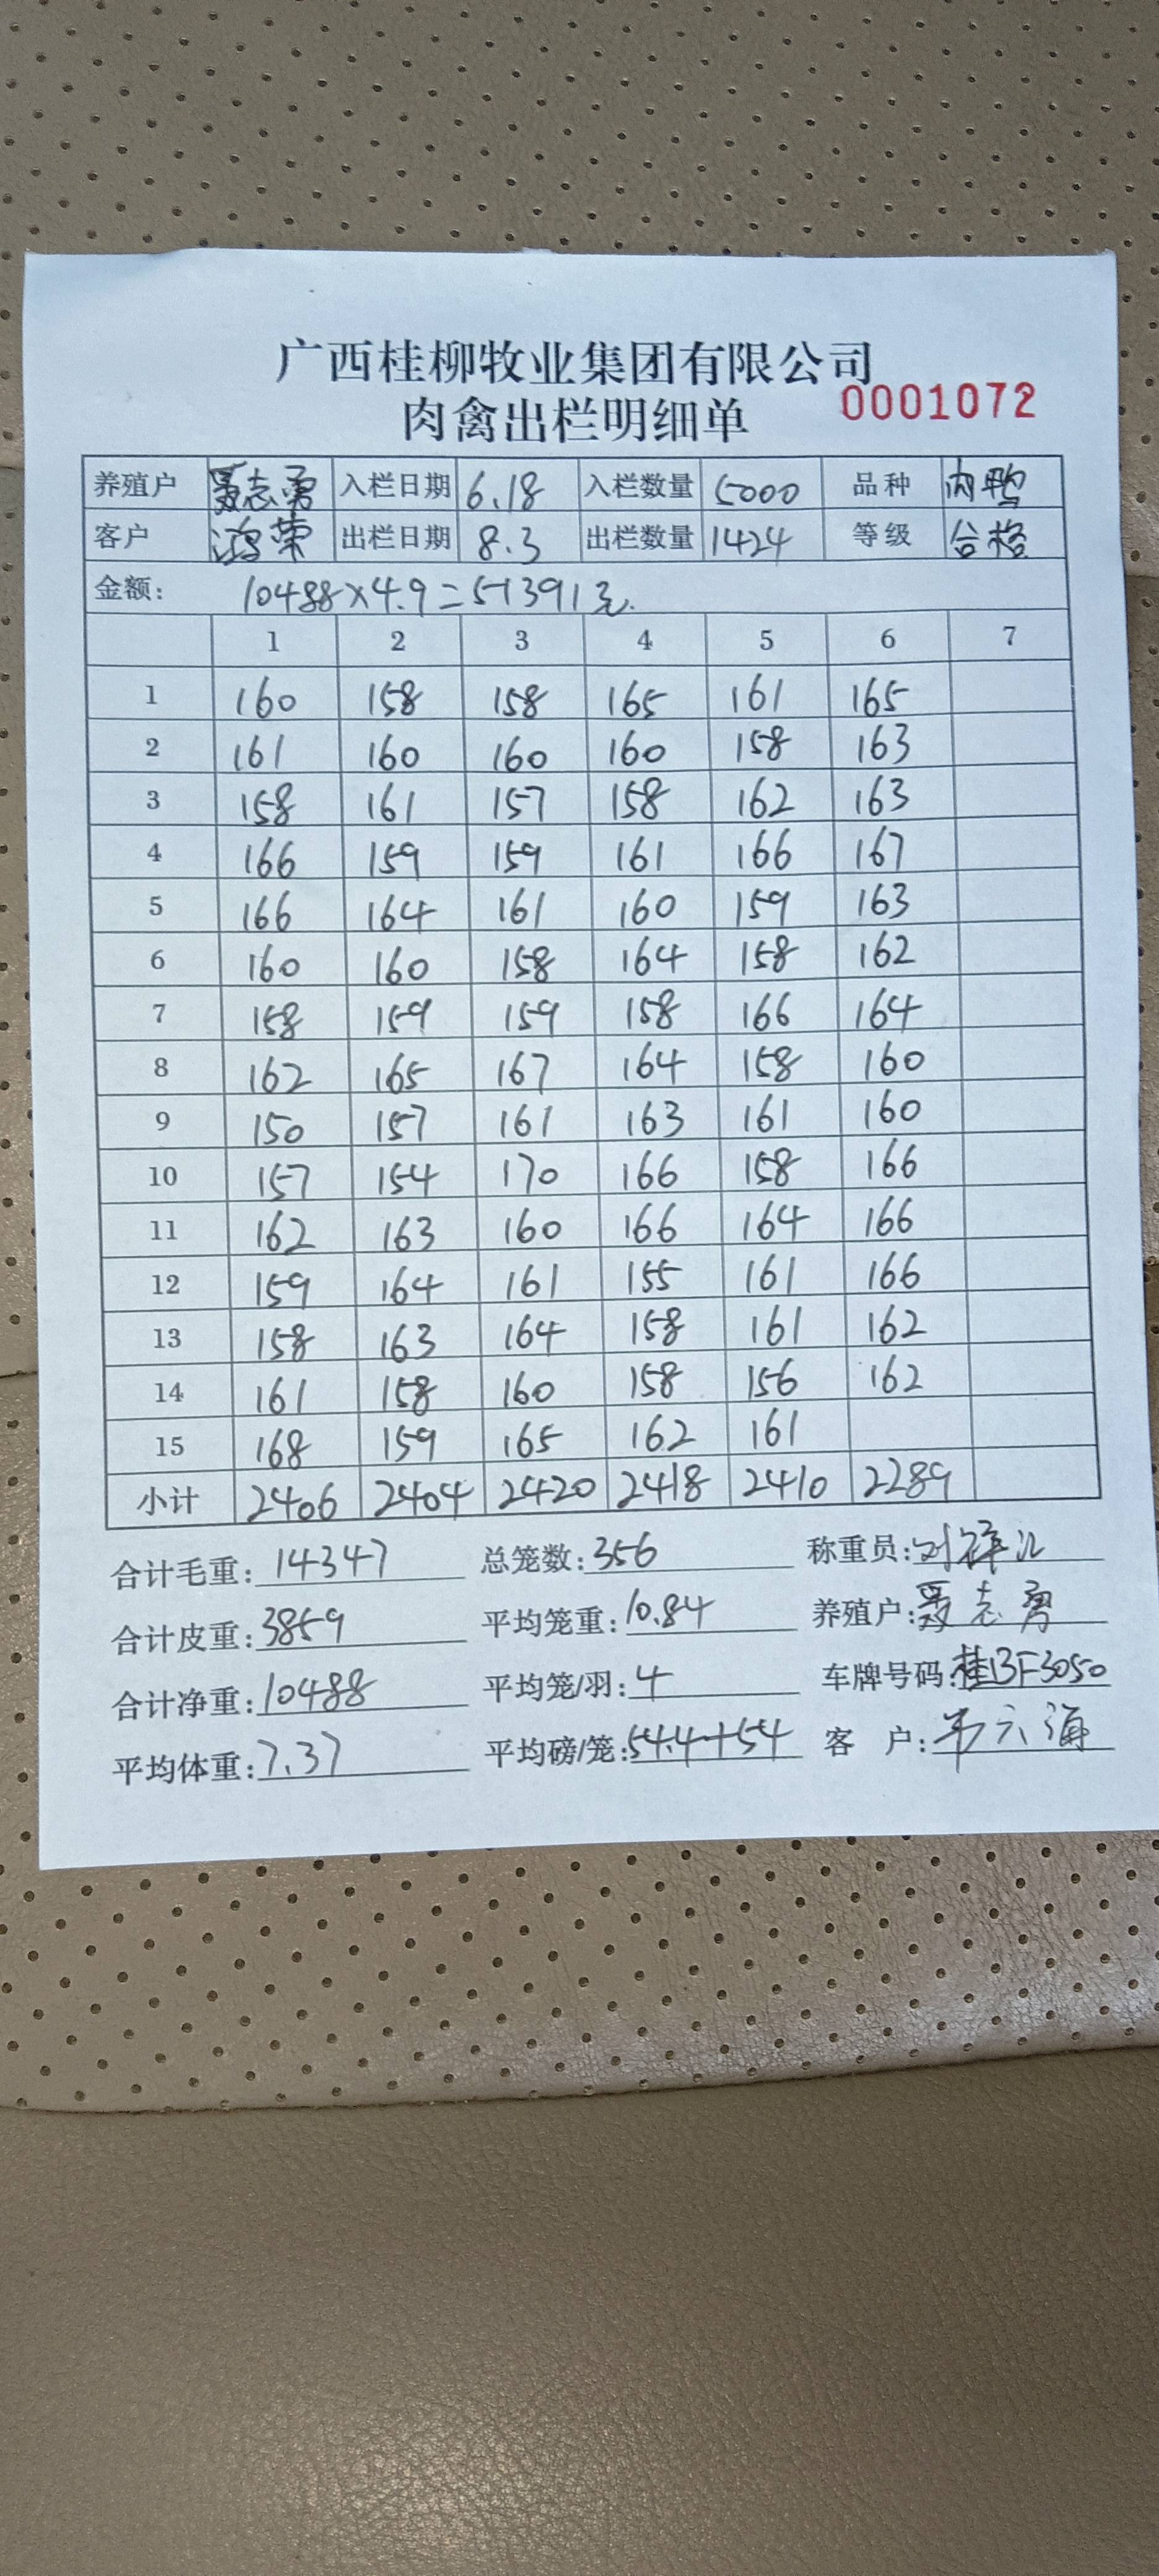 广西桂柳牧业集团有限公司
肉禽出栏明细单 0001072
养殖户 聂志勇 入栏日期 6.18 入栏数量 5000 品种 肉鸭
客户 鸿荣 出栏日期 8.3 出栏数量 1424 等级 合格
金额: 10488×4.9=51391元.
1 2 3 4 5 6 7
1 160 158 158 165 161 165
2 161 160 160 160 158 163
3 158 161 157 158 162 163
4 166 159 159 161 166 167
5 166 164 161 160 159 163
6 160 160 158 164 158 162
7 158 159 159 158 166 164
8 162 165 167 164 158 160
9 150 157 161 163 161 160
10 157 154 170 166 158 166
11 162 163 160 166 164 166
12 159 164 161 155 161 166
13 158 163 164 158 161 162
14 161 158 160 158 156 162
15 168 159 165 162 161
小计 2406 2404 2420 2418 2410 2289
合计毛重: 14347 总笼数: 356 称重员:
合计皮重: 3859 平均笼重: 10.84 养殖户: 聂志勇
合计净重: 10488 平均笼/羽: 4 车牌号码: 桂BF3050
平均体重: 7.37 平均磅/笼: 54.4+54 客 户: 韦六海